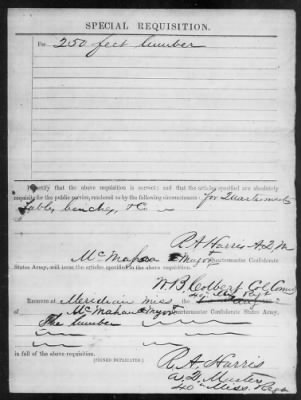 SPECIAL REQUISITION.
For 250 feet lumber
I certify that the above requisition is correct; and that the articles specified are absolutely
requisite for the public service, rendered so by the following circumstances: for Quartermaster
tables, benches, &c
R A Harris A.Q.M.
McMahan Major Quartermaster Confederate
States Army, will issue the articles specified in the above requisition.
W. B. Colbert Col Comd
40 Miss Regt
RECEIVED at Meridian Miss
of McMahan Major Quartermaster Confederate States Army,
The lumber
in full of the above requisition.
(SIGNED DUPLICATES.)
R. A. Harris
A. Q. Master
40 Miss. Regt